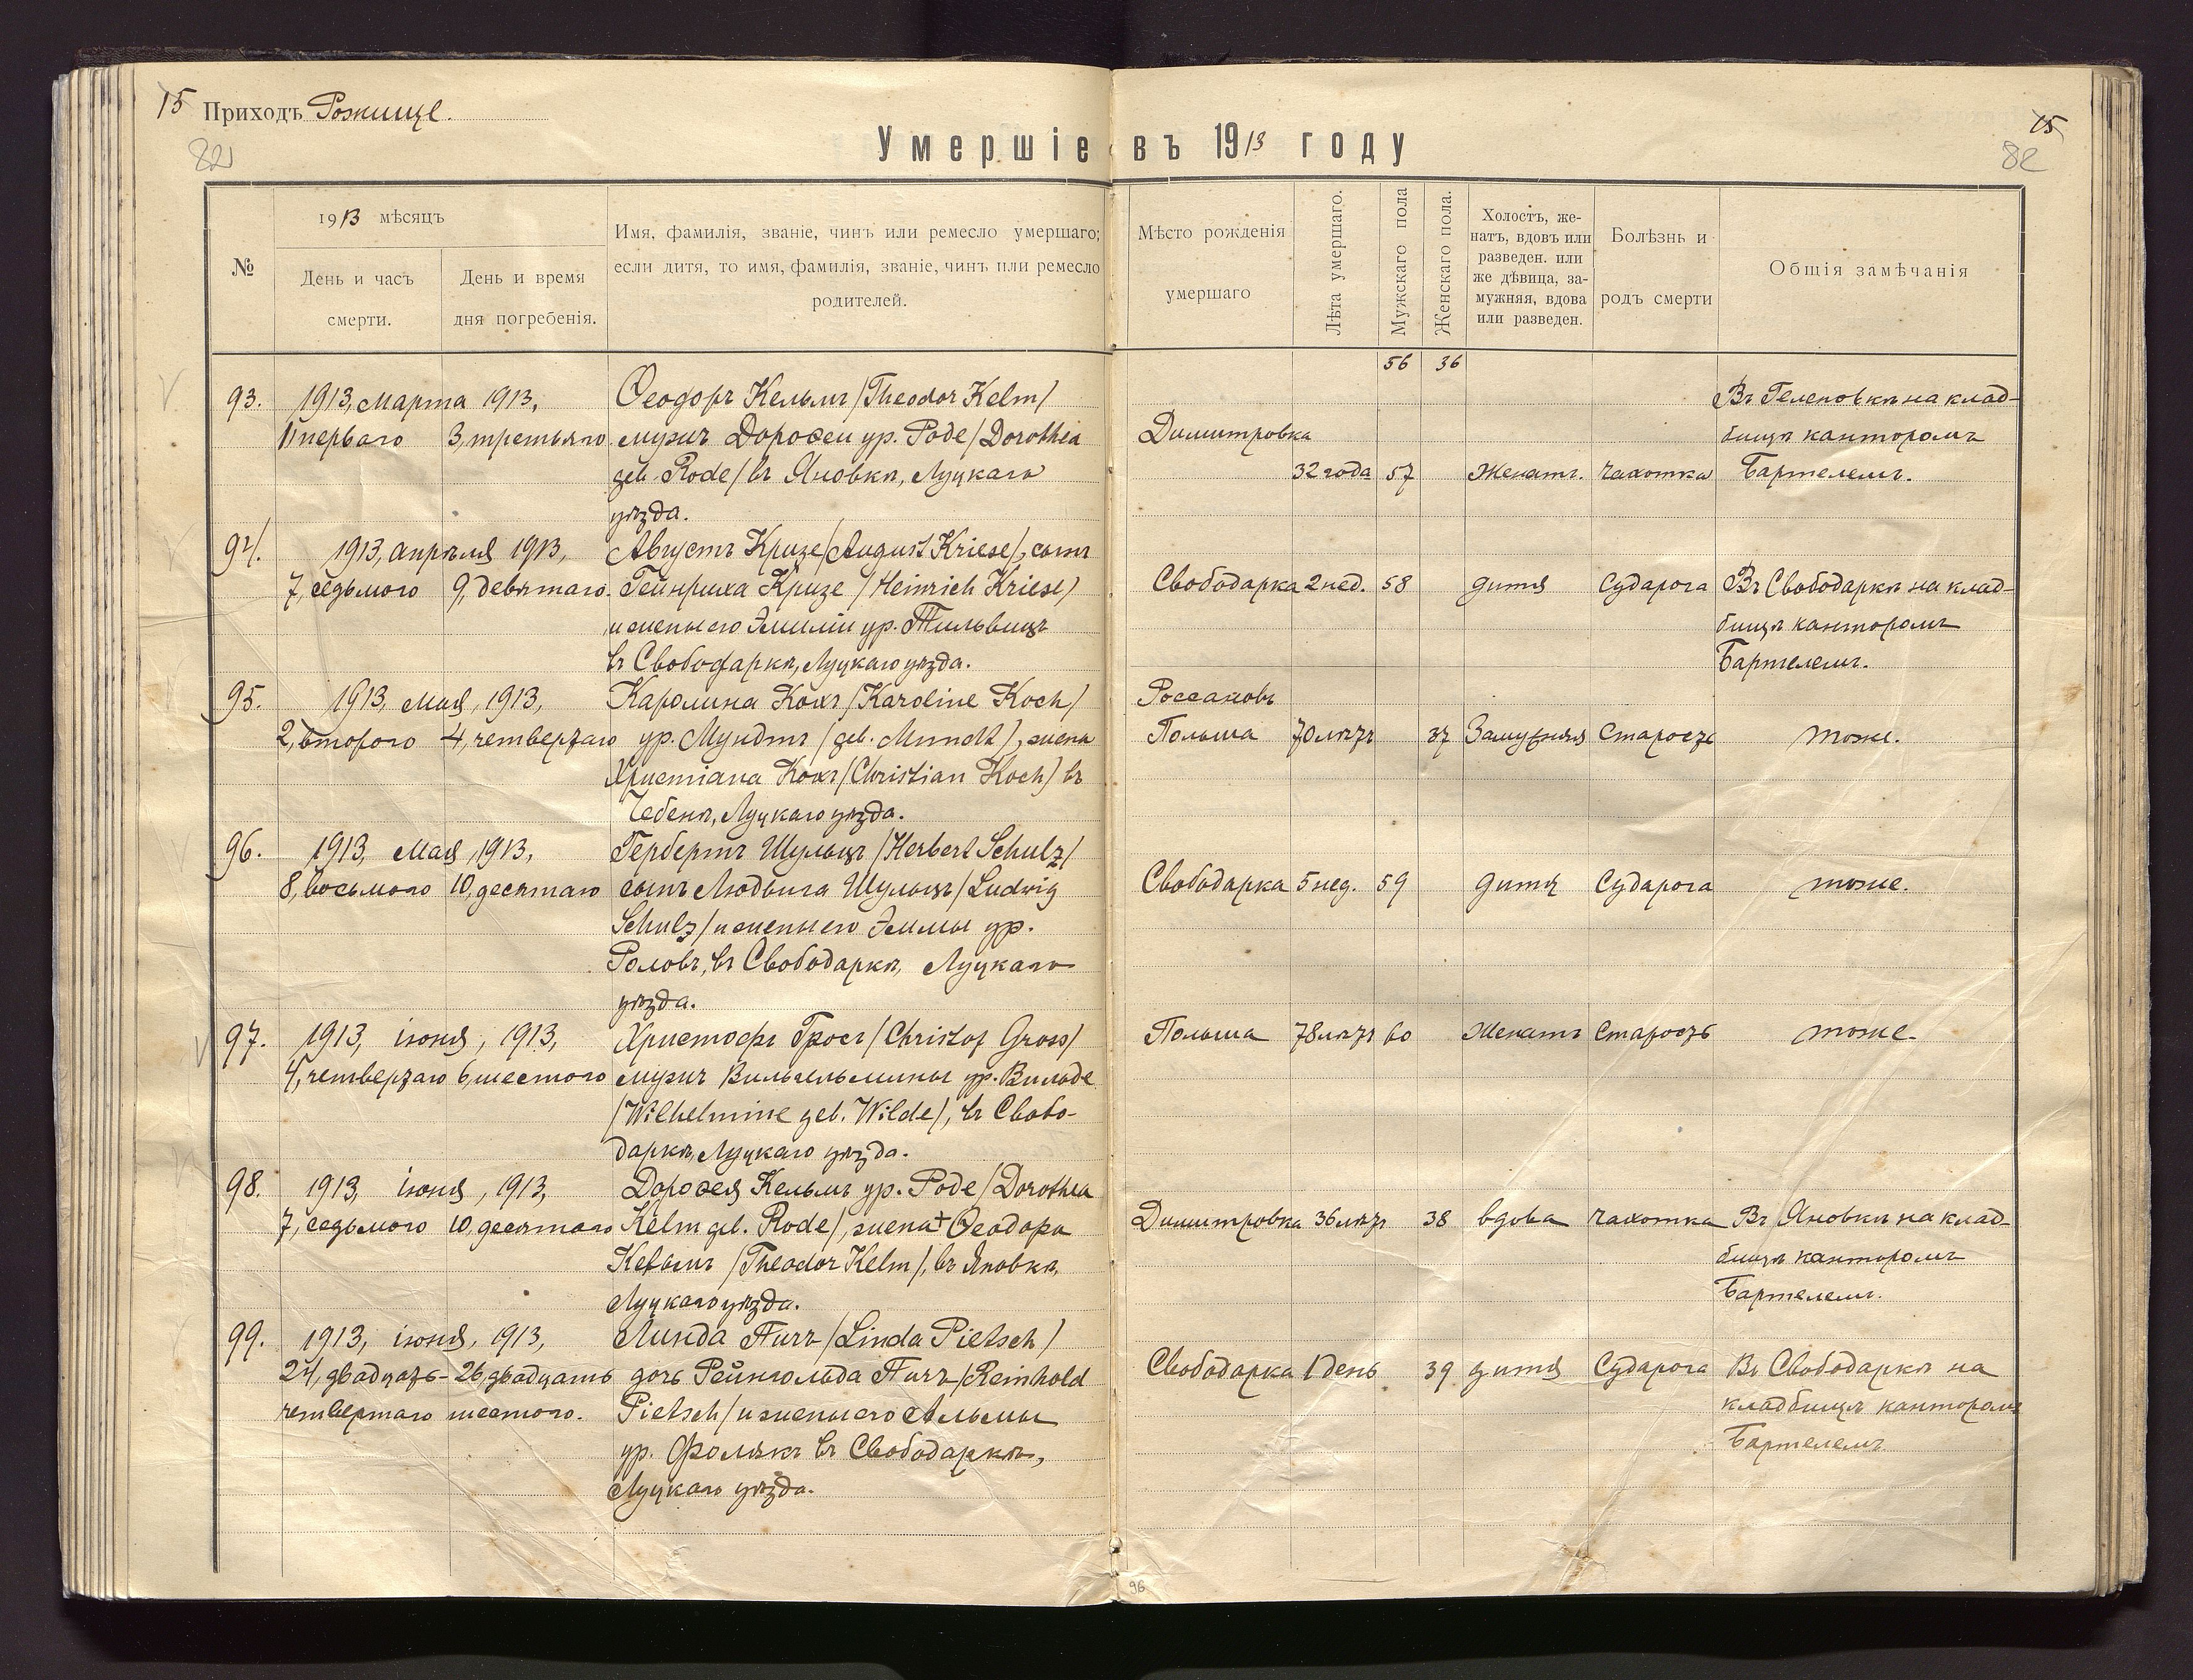 15 Приходъ Рожище.
82
15
82
Умершіе въ 1913 году
№
1913 мѣсяцъ
День и часъ
смерти.
День и время
дня погребенія.
Имя, фамилія, званіе, чинъ или ремесло умершаго;
если дитя, то имя, фамилія, званіе, чинъ или ремесло
родителей.
Мѣсто рожденія
умершаго
Лѣта умершаго.
Мужскаго пола
Женскаго пола.
Холостъ, же-
натъ, вдовъ или
разведен. или
же дѣвица, за-
мужняя, вдова
или разведен.
Болѣзнь и
родъ смерти
Общія замѣчанія
56 36
93. 1913, марта 1913, Ѳеодоръ Кельмъ /Theodor Kelm/ Въ Геленовкѣ на клад-
1 перваго 3, третьяго мужъ Доротеи ур. Роде /Dorothea Димитровка бищѣ канторомъ
geb. Rode/ въ Яновкѣ, Луцкаго 32 года 57 Женатъ. Чахотка Бартелемъ.
уѣзда.
94. 1913, апрѣля 1913, Августъ Кризе /August Kriese/, сынъ
7, седьмого 9, девятаго. Гейнриха Кризе /Heinrich Kriese/ Свободарка 2 нед. 58 дитя Сударога Въ Свободаркѣ на клад-
и жены его Эмиліи ур. Тильвицъ бищѣ канторомъ
въ Свободаркѣ, Луцкаго уѣзда. Бартелемъ.
95. 1913, мая, 1913, Каролина Кохъ /Karoline Koch/ Россановъ
2, второго 4, четвертаго ур. Мундтъ /geb. Mundt/, жена Польша 70 лѣтъ 37 Замужняя Старость тоже.
Христіана Кохъ /Christian Koch/ въ
Чебенѣ, Луцкаго уѣзда.
96. 1913, мая, 1913, Гербертъ Шульцъ /Herbert Schulz/
8, восьмого 10, десятаго сынъ Людвига Шульцъ /Ludwig Свободарка 5 нед. 59 дитя Сударога тоже.
Schulz/ и жены его Эммы ур.
Роловъ, въ Свободаркѣ, Луцкаго
уѣзда.
97. 1913, іюня, 1913, Христофъ Гросъ /Christof Gross/ Польша 78 лѣтъ 60 Женатъ Старость тоже.
4, четвертаго 6, шестого мужъ Вильгельмины ур. Вильде
/Wilhelmine geb. Wilde/, въ Свобо-
даркѣ, Луцкаго уѣзда.
98. 1913, іюня, 1913, Доротея Кельмъ ур. Роде /Dorothea
7, седьмого 10, десятаго Kelm geb. Rode/, жена + Ѳеодора Димитровка 36 лѣтъ 38 вдова Чахотка Въ Яновкѣ на клад-
Кельмъ /Theodor Kelm/, въ Яновкѣ, бищѣ канторомъ
Луцкаго уѣзда. Бартелемъ.
99. 1913, іюня, 1913, Линда Пичъ /Linda Pietsch/
24, двадцать- 26, двадцать дочь Рейнгольда Пичъ /Reinhold Свободарка 1 день 39 дитя Сударога Въ Свободаркѣ на
четвертаго шестого. Pietsch/ и жены его Альмы кладбищѣ канторомъ
ур. Фолякъ въ Свободаркѣ, Бартелемъ
Луцкаго уѣзда.
96